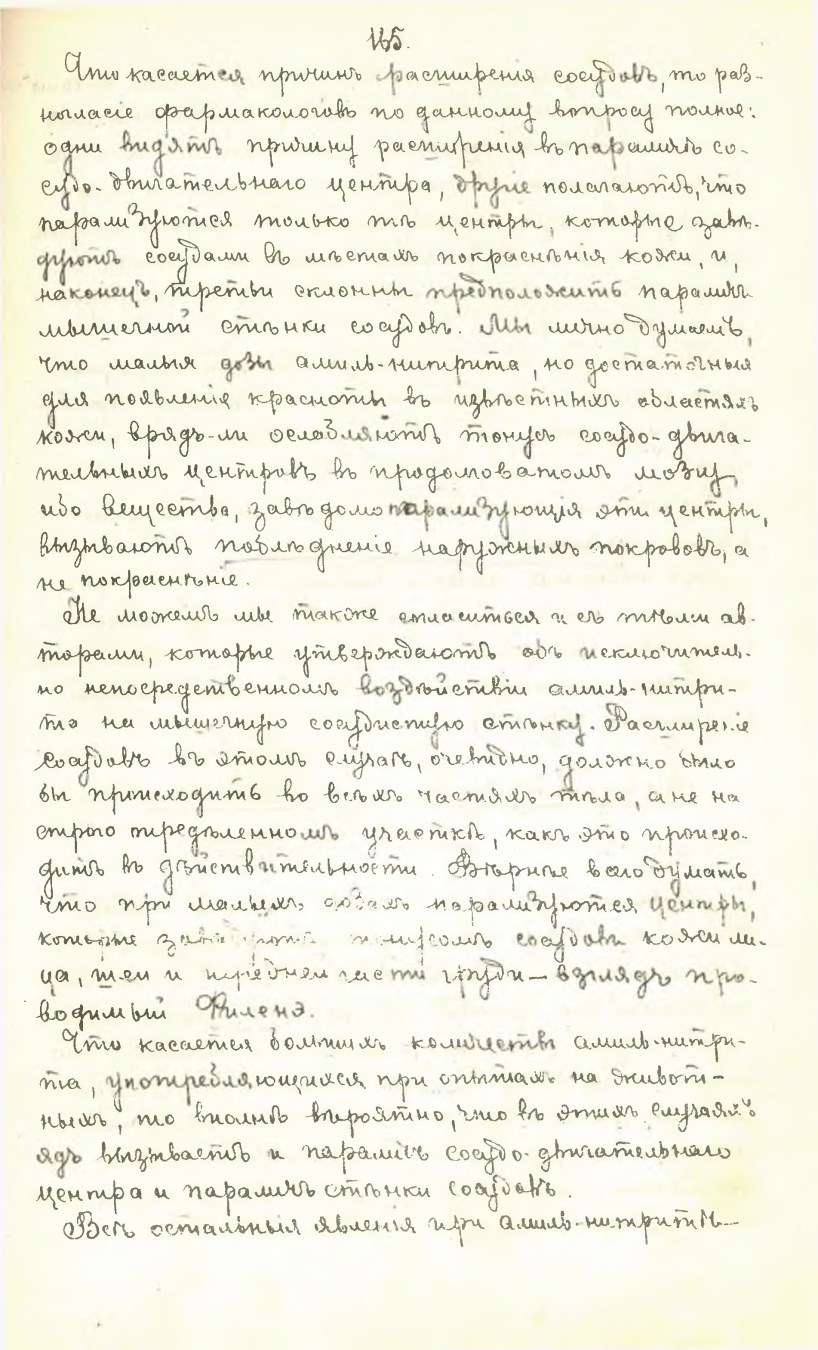 165.
Что касается причинъ расширенія сосудовъ, то раз-
ногласіе фармакологовъ по данному вопросу полное:
одни видятъ причину расширенія въ параличѣ со-
судо-двигательнаго центра, другіе полагаютъ, что
парализуются только тѣ центры, которые завѣ-
дуютъ сосудами въ мѣстахъ покраснѣнія кожи, и,
наконецъ, третьи склонны предположить параличъ
мышечной стѣнки сосудовъ. Мы лично думаемъ,
что малыя дозы амиль-нитрита, но достаточныя
для появленія красноты въ извѣстныхъ областяхъ
кожи, врядъ-ли ослабляютъ тонусъ сосудо-двига-
тельныхъ центровъ въ продолговатомъ мозгу,
ибо вещества, завѣдомо парализующія эти центры,
вызываютъ поблѣдненіе наружныхъ покрововъ, а
не покраснѣніе.
Не можемъ мы также согласиться и съ тѣми ав-
торами, которые утверждаютъ объ исключитель-
но непосредственномъ воздѣйствіи амиль-нитри-
та на мышечную сосудистую стѣнку. Расширеніе
сосудовъ въ этомъ случаѣ, очевидно, должно было
бы происходить во всѣхъ частяхъ тѣла, а не на
строго предѣленномъ участкѣ, какъ это происхо-
дитъ въ дѣйствительности. Вѣрнѣе всего думать,
что при малыхъ дозахъ парализуются центры,
которые тонусомъ сосудовъ кожи ли-
ца, шеи и передней части груди — взглядъ про-
водимый Филенэ.
Что касается большихъ количествъ амиль-нитри-
та, употребляющихся при опытахъ на живот-
ныхъ, то вполнѣ вѣроятно, что въ этихъ случаяхъ
ядъ вызываетъ и параличъ сосудо-двигательнаго
центра и параличъ стѣнки сосудовъ.
Всѣ остальныя явленія при амиль-нитритѣ—